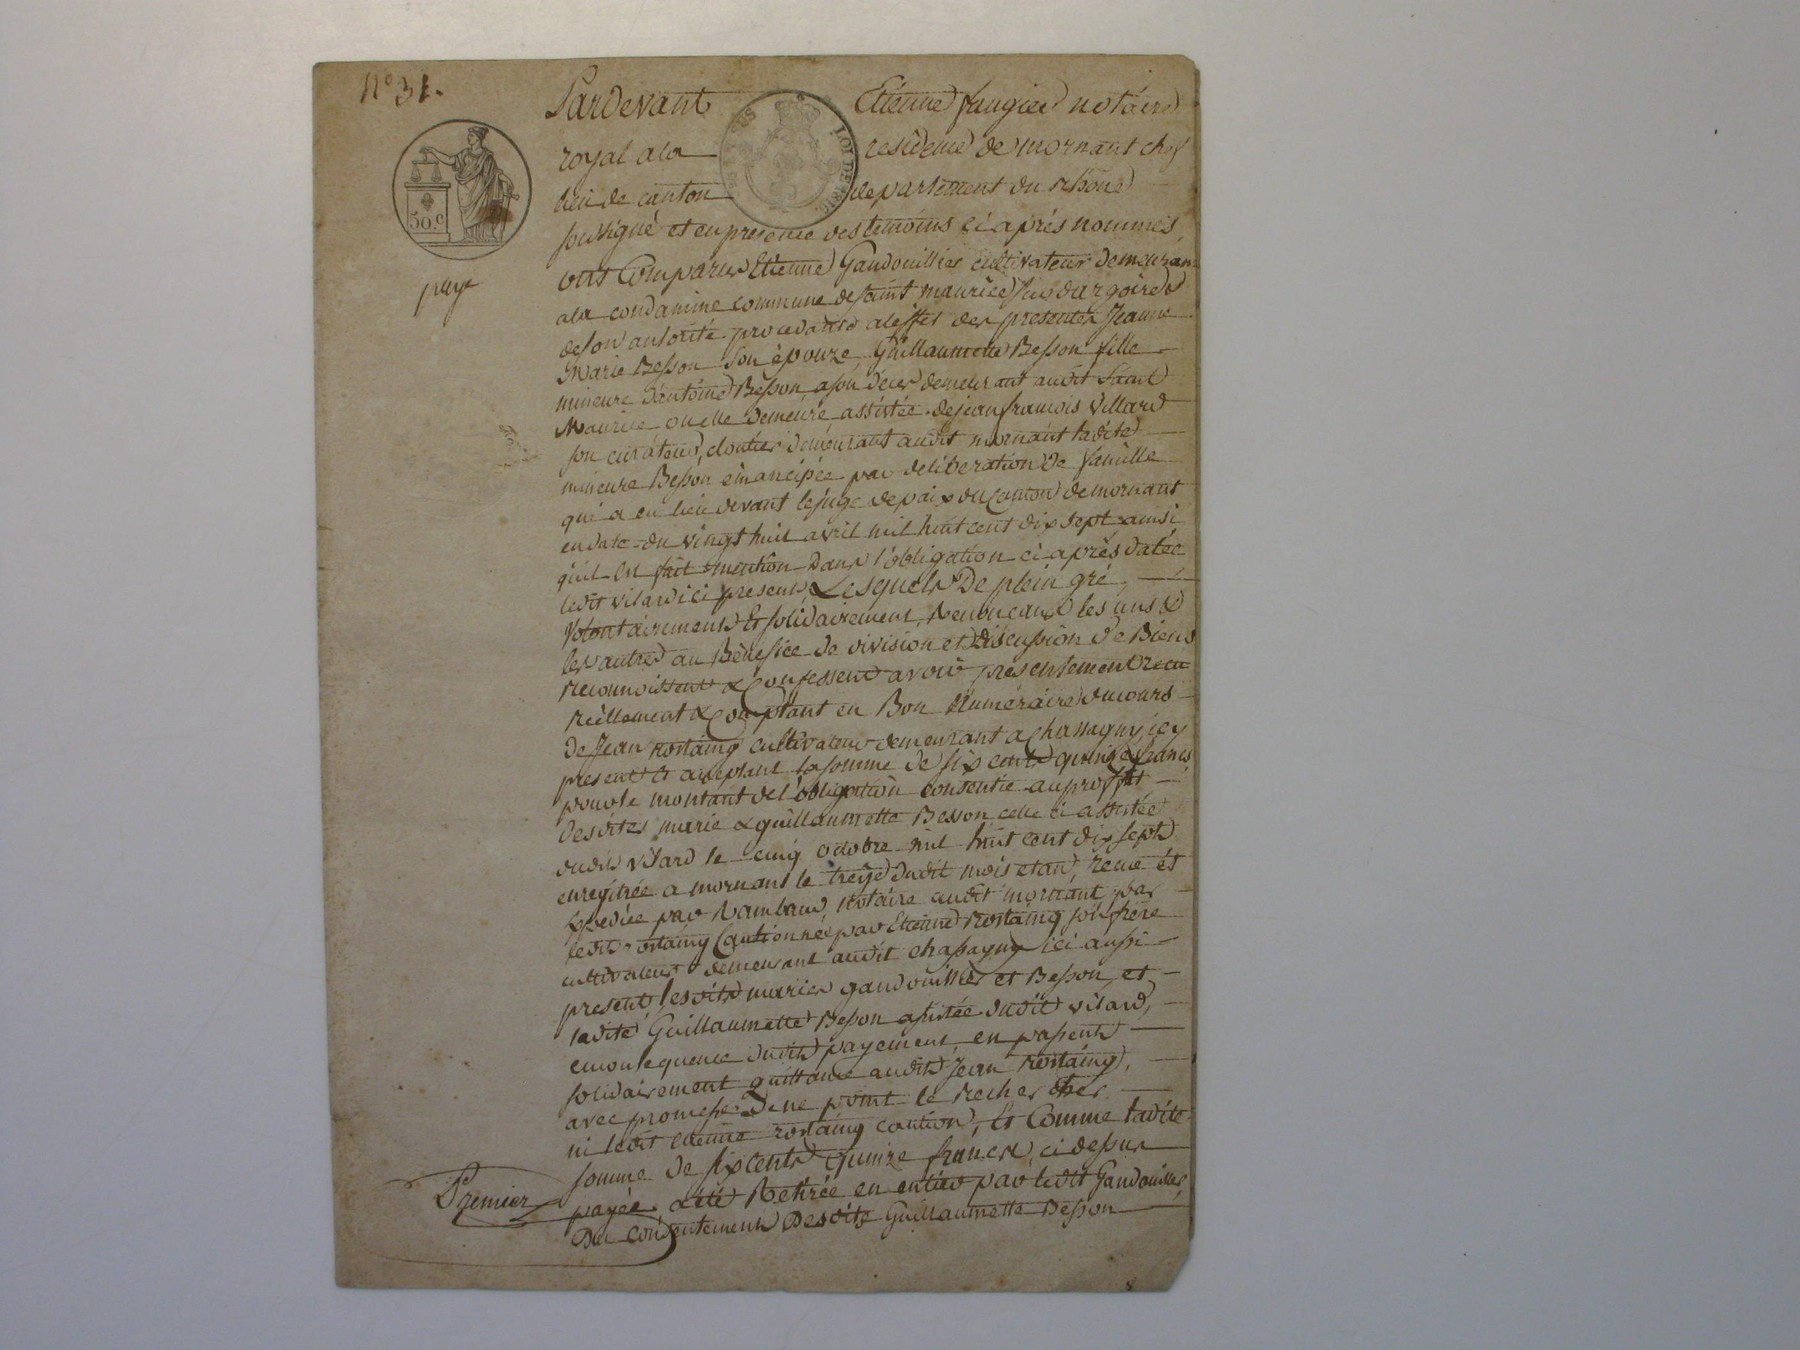 N° 31.
Pardevant Etienne faugier notaire
royal a la residence de mornant chef
lieu de canton departement du rhône
LOI DE 1816
50.C
soussigné et en presence des temoins ci après nommés,
paye
ont Comparus Etienne Gandouillier cultivateur demeurant
a la condamine commune de saint maurice sur dargoire
de son autorité procedants a l'effet des presentes Jeanne
Marie Besson son épouze, Guillaumette Besson fille
mineure d'antoine Besson, a son déces demeurant audit Saint
Maurice ou elle demeure assistée de jean francois Villard
son curateur, cloutier demeurant audit mornant ladite
mineure Besson émancipée par deliberation de famille
qui a eu lieu devant le juge de paix du Canton de mornant
en date du vingt huit avril mil huit cent dix sept ainsi
qu'il en fait mention dans l'obligation ci après datée
ledit vilard ici present, Lesquels De plein gré,
Volontairement Et solidairement, Renonceant les uns &
les autres au Bénéfice de division et discussion de Biens
reconnoissent & Confessent avoir presentement recu
réellement & Comptant en Bon Numéraire du cours
de Jean rostaing cultivateur demeurant a Chassagny, icy
present et acceptant la somme de six cents quinze francs
pour le montant de l'obligation consentie au proffit
desdites marie & guillaumette Besson, celle ci assistée
dudit vilard le cinq octobre mil huit cent dix sept
enregitrée a mornant le treize dudit mois et an, recue et
expediée par Rambaud, Notaire audit mornant, par
ledit rostaing Cautionnée par Etienne Rostaing son frère
cultivateur demeurant audit chassagny ici aussi
present, lesdits mariés gandouillier et Besson, et
ladite Guillaumette Besson assistée dudit vilard,
en consequence dudit payement, en passent
solidairement quittance audit Jean rostaing,
avec promesse de ne point le rechercher
ni ledit etienne rostaing caution, Et Comme ladite
somme de six cents quinze francs, ci dessus
payée a été Retirée en entier par ledit Gandouillier,
Du consentement desdits Guillaumette Besson
Premier